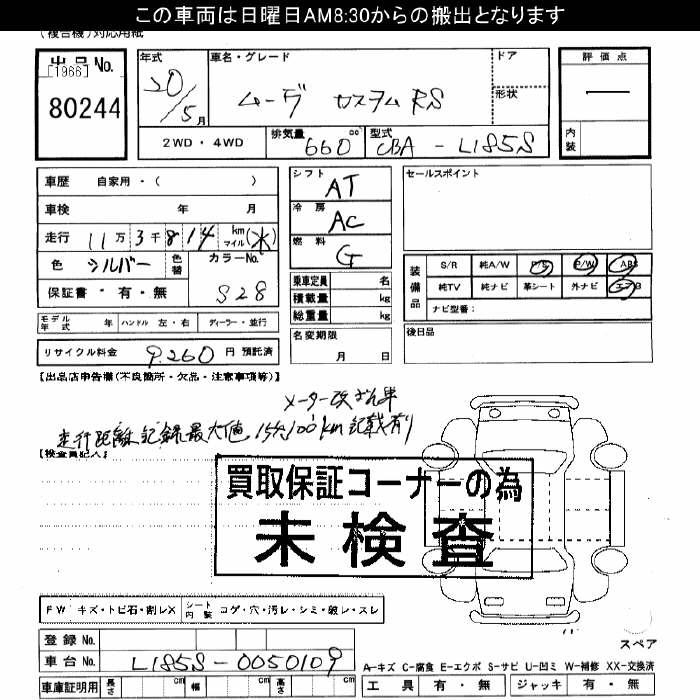 この車両は日曜日AM8:30からの搬出となります
(複合機)対応用紙
出品No.
[1966]
80244
年式 20/5月
車名・グレード ムーヴ カスタムRS
ドア
形状
評価点
内装
2WD・4WD
排気量 660cc
型式 CBA-L185S
車歴 自家用・( )
車検 年 月
走行 11万3千814km マイル(米)
色 シルバー 色替 カラーNo. S28
保証書・有・無
モデル年式 年 ハンドル 左・右 ディーラー・並行
リサイクル料金 9.260円 預託済
シフト AT
冷房 AC
燃料 G
乗車定員 名
積載量 kg
総重量 kg
名変期限
月 日
セールスポイント
装備品
S/R 純A/W P/S P/W ABS
純TV 純ナビ 革シート 外ナビ エアB
ナビ型番:
後日品
【出品店申告欄(不良箇所・欠品・注意事項等)】
メーター改ざん車
走行距離記録最大値 15万6100km記載有り
【検査員記入】
買取保証コーナーの為
未検査
FW キズ・トビ石・割レX
シート内装 コゲ・穴・汚レ・シミ・破レ・スレ
登録No.
車台No. L185S-0050109
車庫証明用 長さ cm 幅 cm 高さ cm
スペア
A-キズ C-腐食 E-エクボ S-サビ U-凹ミ W-補修 XX-交換済
工具 有・無 ジャッキ 有・無